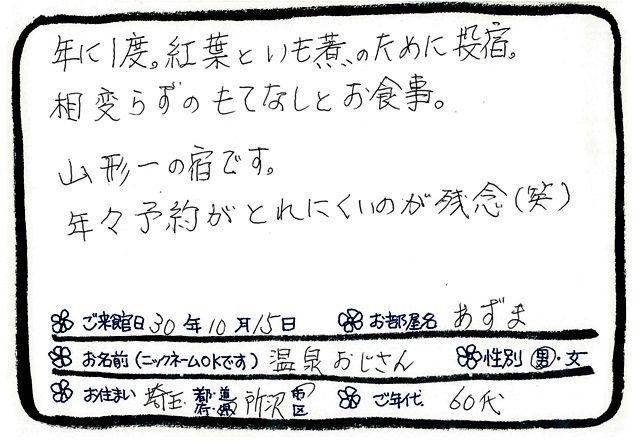 年に1度。紅葉といも煮のために投宿。
相変らずのもてなしとお食事。
山形一の宿です。
年々予約がとれにくいのが残念(笑)
ご来館日 30年10月15日 お部屋名 あずま
お名前(ニックネームOKです) 温泉おじさん 性別 男・女
お住まい 埼玉 都・道・府・県 所沢 市・区 ご年代 60代